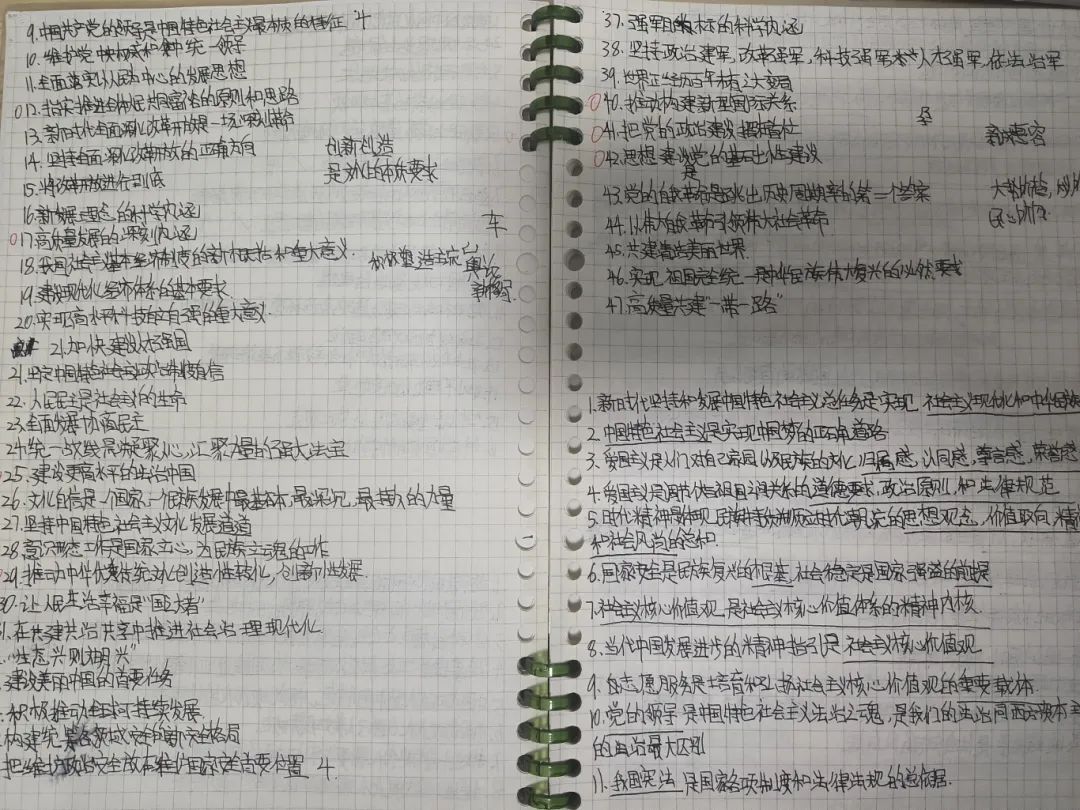 9.中国共产党的领导是中国特色社会主义最本质的特征 4
10.维护党中央权威和集中统一领导
11.全面落实以人民为中心的发展思想
12.扎实推进全体人民共同富裕的原则和思路
13.新时代全面深化改革开放是一场深刻革命
14.坚持全面深化改革开放的正确方向
15.将改革开放进行到底
创新创造
是文化的本质要求
16.新发展理念的科学内涵
17.高质量发展的深刻内涵
车
18.我国社会主义基本经济制度的新概括和重大意义.
19.建设现代化经济体系的基本要求.
20.实现高水平科技自立自强的重大意义.
21.加快建设人才强国
21.坚定中国特色社会主义政治制度自信
22.人民民主是社会主义的生命
23.全面发展协商民主
24.统一战线是凝聚人心,汇聚力量的强大法宝
25.建设更高水平的法治中国
26.文化自信是一个国家,一个民族发展中最基本,最深沉,最持久的力量
27.坚持中国特色社会主义文化发展道道
28.意识形态工作是国家立心,为民族立魂的工作
29.推动中华优秀传统文化创造性转化,创新性发展.
30.让人民生活幸福是“国之大者”
1.在共建共治共享中推进社会治理现代化
“生态兴则文明兴”
建设美丽中国的首要任务
积极推动全球可持续发展.
构建统筹各领域安全的新安全格局
把维护政治安全放在维护国家安全首要位置 4.
37.强军目标的科学内涵
38.坚持政治建军,改革强军,科技强军,人才强军,依法治军
39.世界正经历百年未有之大变局
40.推动构建新型国际关系
41.把党的政治建设摆在首位
42.思想建设是党的基础性建设
43.党的自我革命是跳出历史周期率的第二个答案
44.以伟大自我革命引领伟大社会革命
45.共建清洁美丽世界.
46.实现祖国完全统一是中华民族伟大复兴的必然要求
47.高质量共建“一带一路”
1.新时代坚持和发展中国特色社会主义总任务是实现 社会主义现代化和中华民族
2.中国特色社会主义是实现中国梦的正确道路
3.爱国主义是人们对自己家园以及民族的文化归属感,认同感,尊严感,荣誉感
4.爱国主义是调节个人与祖国之间关系的道德要求,政治原则,和法律规范
5.时代精神是体现民族特质顺应时代潮流的思想观念,价值取向,精神
和社会风尚的总和.
6.国家安全是民族复兴的根基,社会稳定是国家强盛的前提
7.社会主义核心价值观是社会主义核心价值体系的精神内核.
8.当代中国发展进步的精神指引是 社会主义核心价值观
9.志愿服务是培育和弘扬社会主义核心价值观的重要载体.
10.党的领导是中国特色社会主义法治之魂,是我们的法治同西方资本主
的法治最大区别
11.我国宪法 是国家各项制度和法律法规的总依据.